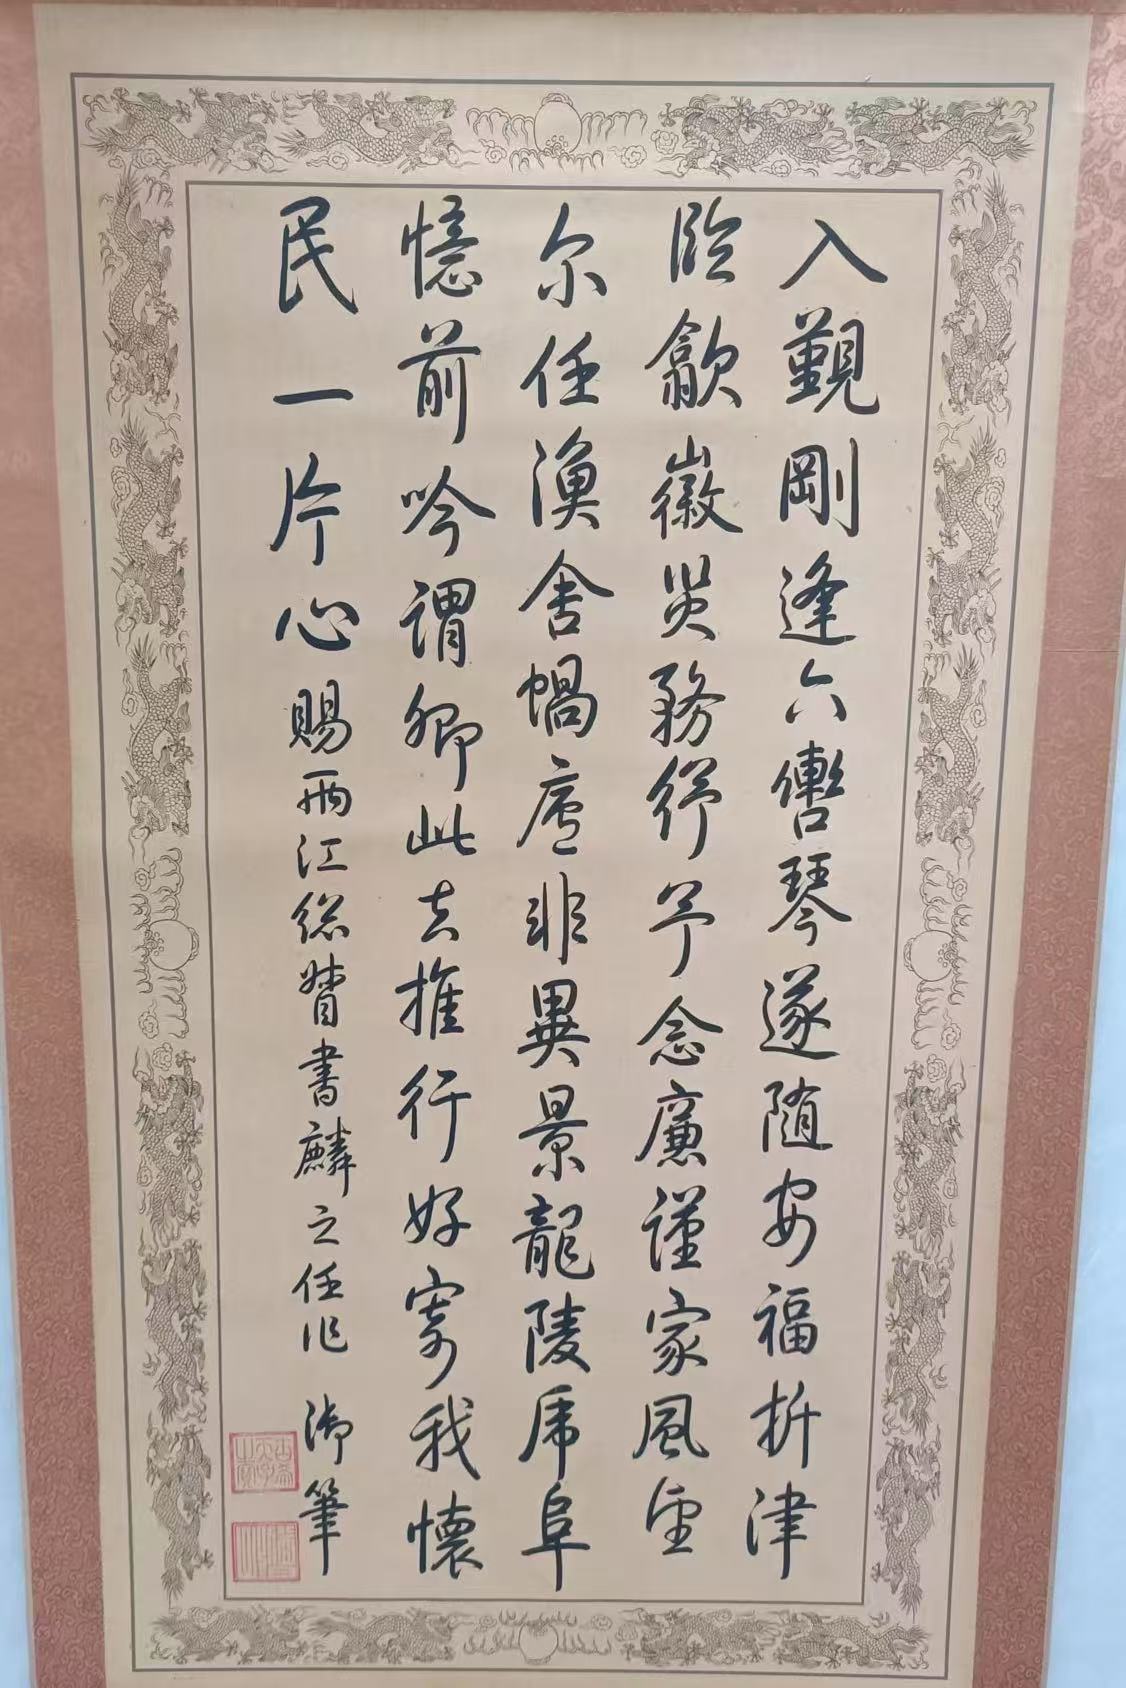 入覲剛逢六轡琴遂随安福析津
臨歙徽災務紓予念廉謹家風望
尔任漁舎蝸廬非異景龍陵虎阜
憶前吟謂卿此去推行好寄我懷
民一片心賜兩江総督書麟之任作 御筆